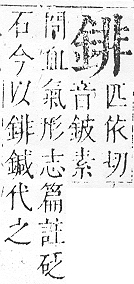 鈹匹依切
音鈹素
問血氣形志篇註砭
石今以鈹鍼代之